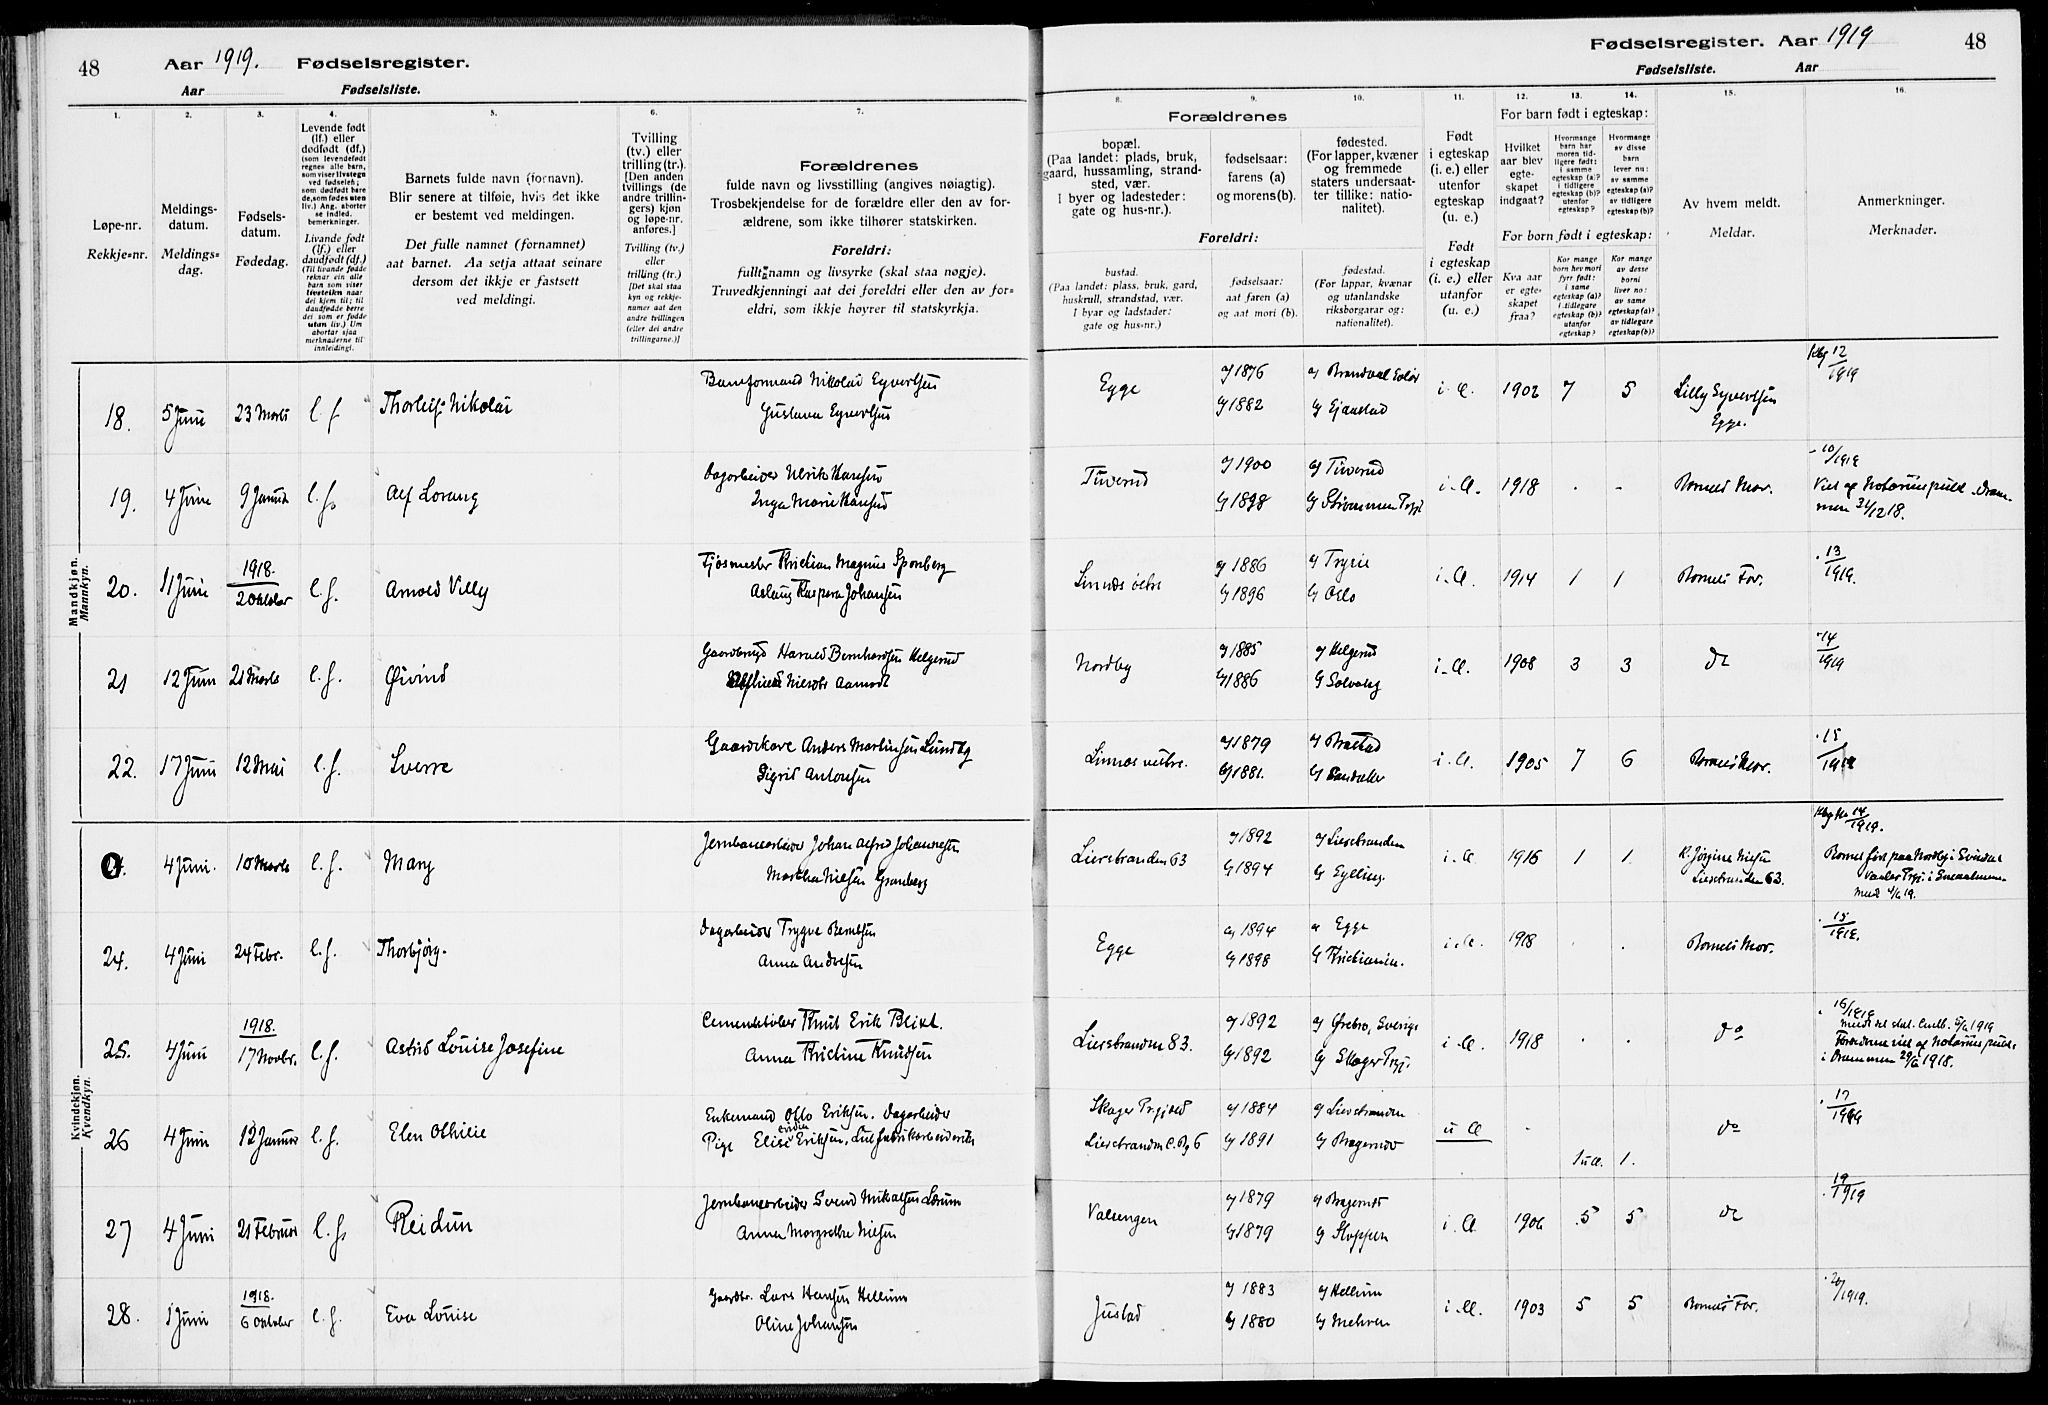 48
Aar 1919. Fødselsregister.
Aar Fødselsliste.
1.
Løpe-nr.
Rekkje-nr.
2.
Meldings-
datum.
Meldings-
dag.
3.
Fødsels-
datum.
Fødedag.
4.
Levende født
(lf.) eller
dødfødt (df.)
(som levendefødt
regnes alle barn,
som viser livstegn
ved fødselen;
som dødfødt bare
de, som fødes uten
liv.) Ang. aborter
se indled.
bemerkninger.
Livande født
(lf.) eller
daudfødt (df.)
(Til livande fødde
reknar ein alle
barn som viser
livsteikn naar
dei kjem til; til
daudfødde berre
dei som er fødde
utan liv.) Um
abortar sjaa
merknaderne til
innleidingi.
5.
Barnets fulde navn (fornavn).
Blir senere at tilføie, hvis det ikke
er bestemt ved meldingen.
Det fulle namnet (fornamnet)
aat barnet. Aa setja attaat seinare
dersom det ikkje er fastsett
ved meldingi.
6.
Tvilling
(tv.) eller
trilling (tr.).
[Den anden
tvillings (de
andre trillin-
gers) kjøn
og løpe-nr.
anføres.]
Tvilling (tv.)
eller
trilling (tr.)
[Det skal staa
kyn og rekkje-
numer aat den
andre tvillingen
(eller dei andre
trillingarne.)]
7.
Forældrenes
fulde navn og livsstilling (angives nøiagtig).
Trosbekjendelse for de forældre eller den av for-
ældrene, som ikke tilhører statskirken.
Foreldri:
fullt namn og livsyrke (skal staa nøgje).
Truvedkjenningi aat dei foreldri eller den av for-
eldri, som ikkje høyrer til statskyrkja.
Mandkjøn.
Mannkyn.
18. 5 Juni 23 Marts l. f. Thorleif Nikolai Nikolai Eyvertsen
Gustava Eyvertsen
19. 4 Juni 9 Januar l. f. Alf Lorang Dagarbeider Ulrik Hansen
Inga Marie Hansen
20. 11 Juni 1918. 2 Oktober l. f. Arnold Villy Fjøsmester Kristian Magnus Sponberg
Aslaug Kaspara Johansen
21 12 Juni 21 Marts l. f. Øivind Gaardbruger Harald Bernhardsen Helgerud
Aamodt
22. 17 Juni 12 Mai l. f. Sverre Gaardskare Anders Martinsen Lundby
Sigrid Antonsen
Kvindekjøn.
Kvendkyn.
4 Juni. 10 Marts l. f. Mary Jernbanearbeider Johan Alfred Johannesen
Martha Nielsen Granberg
24. 4 Juni 24 Febr. l. f. Thorbjørg. Dagarbeider Trygve Berntsen
Anna Andresen
25. 4 Juni 1918. 17 Novbr. l. f. Astrid Louise Josefine Cementstøber Knut Erik Blixt.
Anna Kristine Knudsen
26 4 Juni 12 Januar l. f. Elen Othilie Enkemand Otto Eriksen. Dagarbeider
Pige Elise Eriksen,
27 4 Juni 21 Februar l. f. Reidun Jernbanearbeider Svend Mikalsen Lærum
Anna Margrethe Nielsen
28. 1 Juni 1918. 6 Oktober l. f. Eva Louise Gaardbr. Lars Hansen Hellum
Oline Johansen
Fødselsregister. Aar 1919 48
Fødselsliste. Aar
Forældrenes
8.
bopæl.
(Paa landet: plads, bruk,
gaard, hussamling, strand-
sted, vær.
I byer og ladesteder:
gate og hus-nr.).
9.
fødselsaar:
farens (a)
og morens (b).
10.
fødested.
(For lapper, kvæner
og fremmede
staters undersaat-
ter tillike: natio-
nalitet).
Foreldri:
bustad.
(Paa landet: plass, bruk, gard,
huskrull, strandstad, vær.
I byar og ladstader:
gate og hus-nr.)
fødselsaar:
aat faren (a)
og aat mori (b).
fødestad.
(For lappar, kvænar
og utanlandske
riksborgarar og:
nationalitet).
11.
Født
i egteskap
(i. e.) eller
utenfor
egteskap
(u. e.)
Født
i egteskap
(i. e.) eller
utanfor
egteskap
(u. e.)
For barn født i egteskap:
12.
Hvilket
aar blev
egte-
skapet
indgaat?
13.
Hvormange
barn har
moren tid-
ligere født:
i samme
egteskap (a)?
i tidligere
egteskap (b)?
utenfor
egteskap?
14.
Hvormange
av disse
barn
lever nu:
av samme
egteskap (a)?
av tidligere
egteskap (b)?
For born født i egteskap:
Kva aar
er egte-
skapet
fraa?
Kor mange
born hev mori
fyrr født:
i same
egteskap (a)?
i tidlegare
egteskap (b)?
utanfor
egteskap?
Kor mange
av desse
borni
liver no:
av same
egteskap (a)?
av tidlegare
egteskap (b)?
15.
Av hvem meldt.
Meldar.
16.
Anmerkninger.
Merknader.
Egge a) 1876 a) Brandval Solør i. E. 1902 7 5 Lilly Eyvertsen Egge. 12/1919
b) 1882 b)
Tuverud a) 1900 a) Tuverud i. E. 1918 . - Barnets Mor. 10/1919
b) 1898 b) Strømmen Viet af Notarius publ. Drammen 31/12 18.
Linnæs østre a) 1886 a) Trysil i. E. 1914 1 1 Barnets Far. 13/1919.
b) 1896 b) Oslo
Nordby a) 1885 a) Helgerud i. E. 1908 3 3 do 14/1919
b) 1886 b) Solvang
Linnæs vestre. a) 1879 a) i. E. 1905 7 6 Barnets Mor. 15/1919
b) 1881. b)
Lierstranden 63 a) 1892 a) Lierstranden i. E. 1916 1 1 Jørgine Nielsen Lierstranden 63. 14/1919.
b) 1894 b) Barnet født paa Nordby i Svindal
Egge a) 1894 a Egge i. E. 1918 . . Barnets Mor. 15/1919.
b) 1898 b) Kristiania.
Lierstranden 83. a) 1892 a) Ørebro, Sverige i. E. 1918 . . do 16/1919
b) 1892 b) Skoger Forældrene viet af Notarius publ. i Drammen 1918.
Skoger a) 1884 a) Lierstranden u E - do 17/1919
Lierstranden b) 1891 b) Bragernes 1 u E. 1.
Valsengen a) 1879 a) Bragernes i. E. 1906 5 5 do 19/1919
b) 1879 b) Stoppen
Justad a) 1883 a) Hellum i. E. 1903 5 5 Barnets Far. 20/1919.
b) 1880 b) Mehren